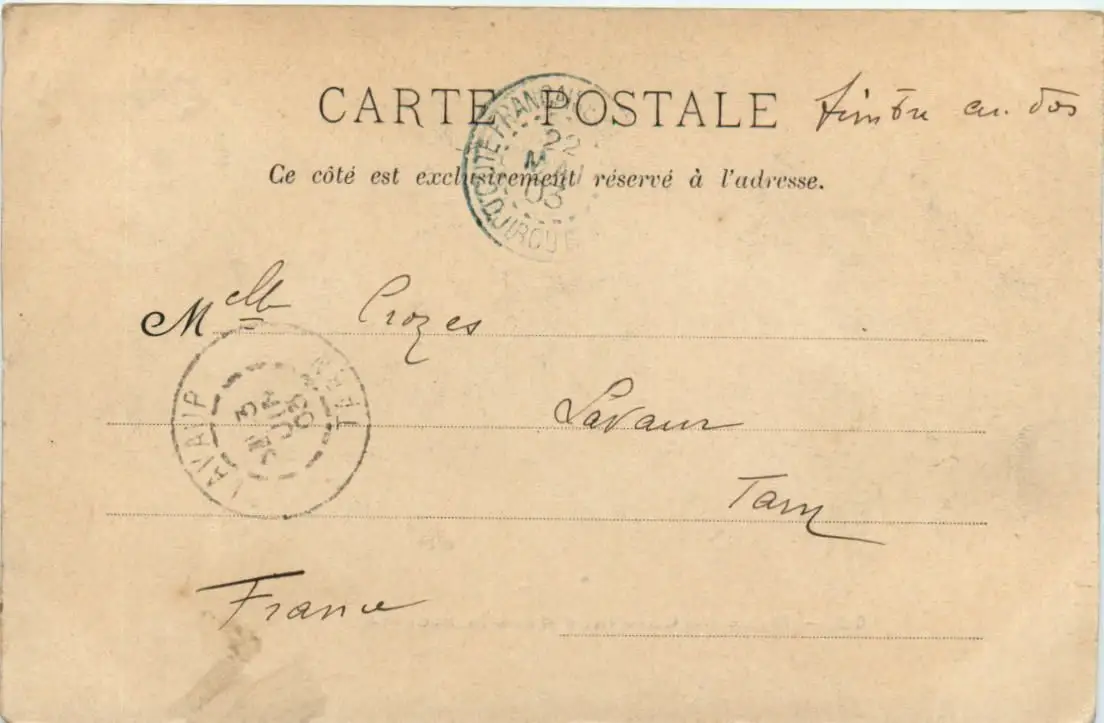 CARTE POSTALE
timbre au dos
Ce côté est exclusivement réservé à l'adresse.
CÔTE FRANÇAISE
22
MAI
03
DJIBOUTI
Melle Crozes
Lavaur
Tarn
France
LAVAUR
3
JUIN
03
TARN